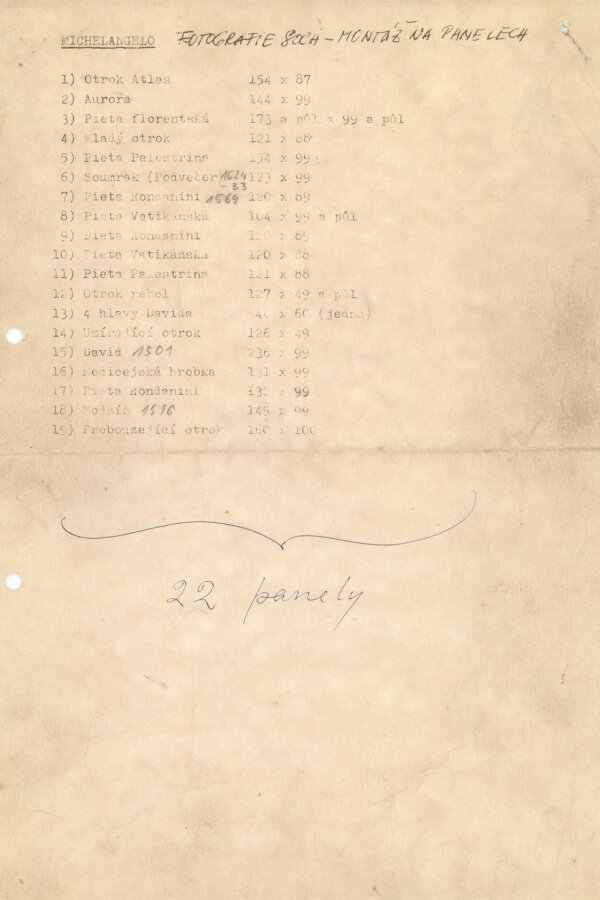 MICHELANGELO FOTOGRAFIE SOCH - MONTÁŽ NA PANELECH
1) Otrok Atlas 154 x 87
2) Aurora 144 x 99
3) Pieta florentská 173 a půl x 99 a půl
4) Mladý otrok 121 x 88
5) Pieta Palestrina 154 x 99
6) Soumrak (Podvečer) 1524-33 123 x 99
7) Pieta Rondanini 1564 120 x 89
8) Pieta Vatikánská 104 x 99 a půl
9) Pieta Rondanini 120 x 89
10) Pieta Vatikánská 120 x 88
11) Pieta Palestrina 121 x 88
12) Otrok rebel 127 x 49 a půl
13) 4 hlavy Davida x 60 (jedna)
14) Umírající otrok 126 x 49
15) David 1501 236 x 99
16) Medicejská hrobka 131 x 99
17) Pieta Rondanini x 99
18) Mojžíš 1516 145 x 99
19) Probouzející otrok 160 x 100
22 panely